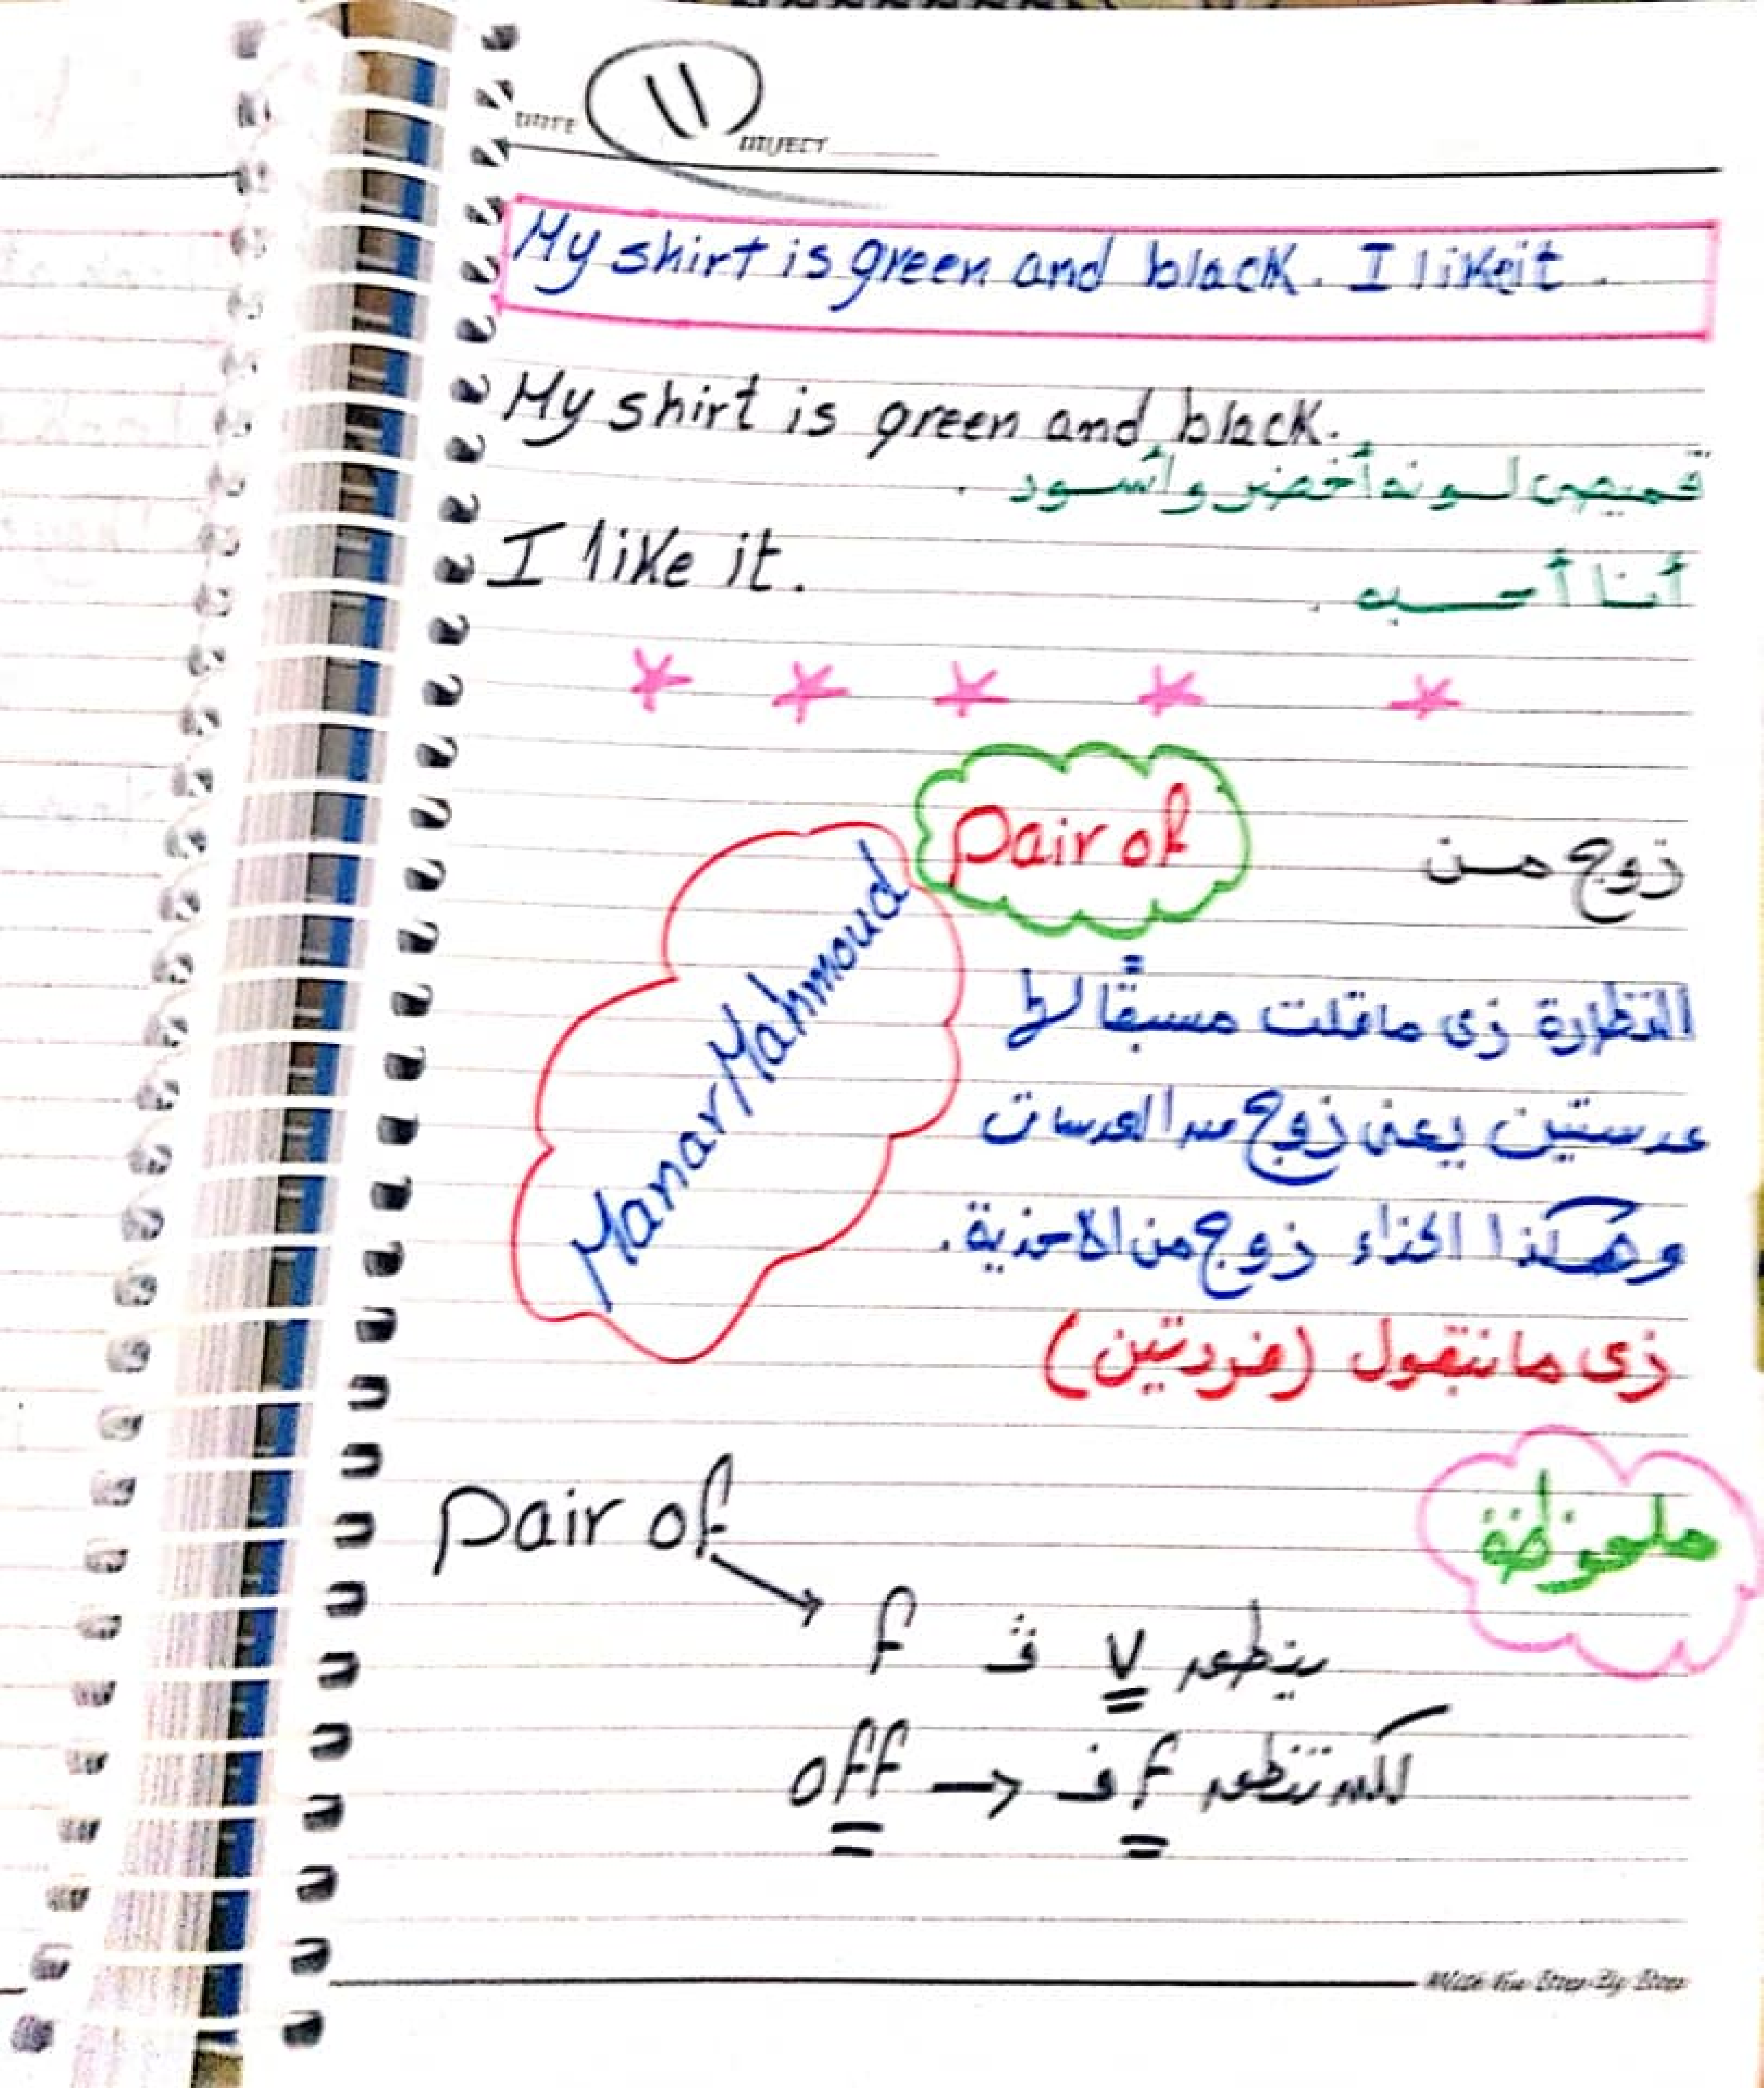 11
DATE
SUBJECT
My shirt is green and black. I like it.
My shirt is green and black.
قميصى لونه أخضر وأسود.
I like it.
أنا أحبه.
pair of
زوج من
Manar Mahmoud
النظارة زى ماقلت مسبقًا لها
عدستين يعنى زوج من العدسات
وهكذا الحذاء زوج من الأحذية.
زى ما بنقول (فردتين)
ملحوظة
pair of
f ف v ينطق
off → ف f لكن تنطق